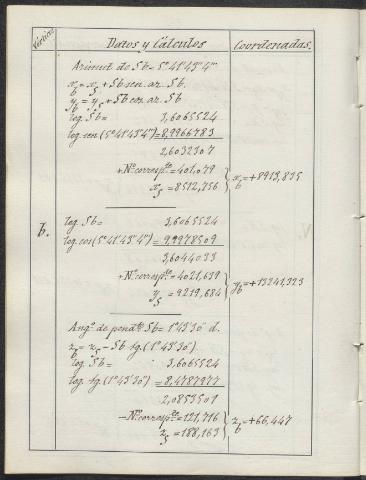 Vértices
Datos y Cálculos
Coordenadas.
Azimut de Sb = 5°41'43"4'''
x_b = x_s + Sb sen. az. Sb.
y_b = y_s + Sb cos. az. Sb.
log. Sb = 3,6065524
log. sen (5°41'43"4''') = 8,9966783
2,6032307
+ Nº corresp.te = 401,079
x_s = 8512,756
x_b = +8913,835
b.
log. Sb = 3,6065524
log. cos (5°41'43"4''') = 9,9978509
3,6044033
+ Nº corresp.te = 4021,639
y_s = 9219,684
y_b = +13241,323
Ang.º de pend.te Sb = 1°43'30" d.
z_b = z_s - Sb tg. (1°43'30")
log. Sb = 3,6065524
log. tg. (1°43'30") = 8,4787977
2,0853501
- Nº corresp.te = 121,716
z_s = 188,163
z_b = +66,447